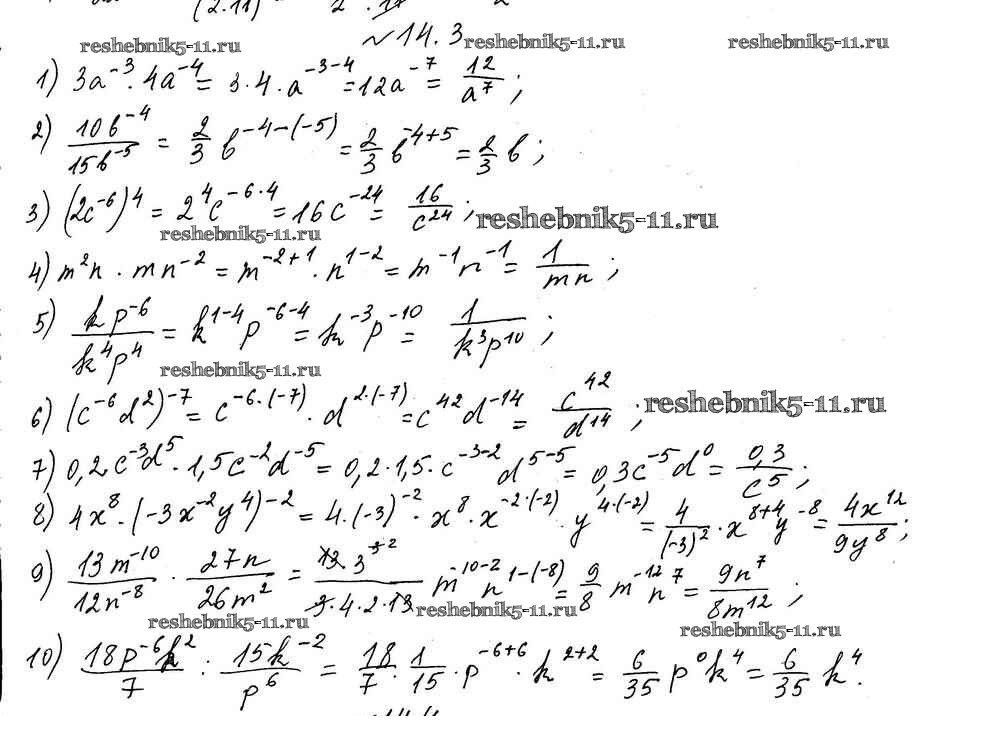 (2·11)
reshebnik5-11.ru №14.3 reshebnik5-11.ru reshebnik5-11.ru
1) 3a⁻³·4a⁻⁴ = 3·4·a⁻³⁻⁴ = 12a⁻⁷ = 12/a⁷;
2) 10b⁻⁴/15b⁻⁵ = 2/3 b⁻⁴⁻⁽⁻⁵⁾ = 2/3 b⁻⁴⁺⁵ = 2/3 b;
3) (2c⁻⁶)⁴ = 2⁴c⁻⁶·⁴ = 16c⁻²⁴ = 16/c²⁴;
reshebnik5-11.ru reshebnik5-11.ru
4) m²n · mn⁻² = m⁻²⁺¹ · n¹⁻² = m⁻¹n⁻¹ = 1/mn;
5) kp⁻⁶/k⁴p⁴ = k¹⁻⁴p⁻⁶⁻⁴ = k⁻³p⁻¹⁰ = 1/k³p¹⁰;
reshebnik5-11.ru
6) (c⁻⁶d²)⁻⁷ = c⁻⁶·⁽⁻⁷⁾ · d²·⁽⁻⁷⁾ = c⁴²d⁻¹⁴ = c⁴²/d¹⁴; reshebnik5-11.ru
7) 0,2c⁻³d⁵ · 1,5c⁻²d⁻⁵ = 0,2·1,5·c⁻³⁻² d⁵⁻⁵ = 0,3c⁻⁵d⁰ = 0,3/c⁵;
8) 4x⁸·(-3x⁻²y⁴)⁻² = 4·(-3)⁻²·x⁸·x⁻²·⁽⁻²⁾·y⁴·⁽⁻²⁾ = 4/(-3)²·x⁸⁺⁴y⁻⁸ = 4x¹²/9y⁸;
9) 13m⁻¹⁰/12n⁻⁸ · 27n/26m² = 13 3³⁻²/3·4·2·13 m⁻¹⁰⁻² n¹⁻⁽⁻⁸⁾ = 9/8 m⁻¹² n⁷ = 9n⁷/8m¹²;
reshebnik5-11.ru reshebnik5-11.ru reshebnik5-11.ru
10) 18p⁻⁶k²/7 : 15k⁻²/p⁶ = 18/7·1/15·p⁻⁶⁺⁶·k²⁺² = 6/35 p⁰k⁴ = 6/35 k⁴.